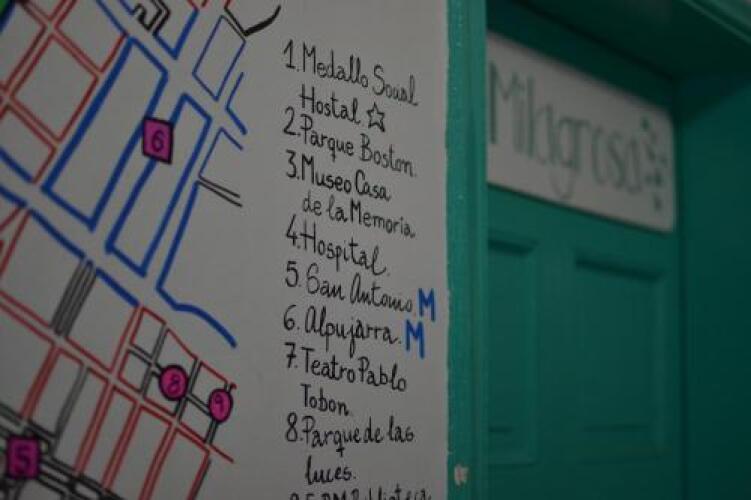 1. Medallo Soual
Hostal ☆
2. Parque Boston.
3. Museo Casa
de la Memoria
4. Hospital.
5. San Antonio. M
6. Alpujarra. M
7. Teatro Pablo
Tobon.
8. Parque de las
luces.
Biblioteca
Milagrosa
6
8
9
5